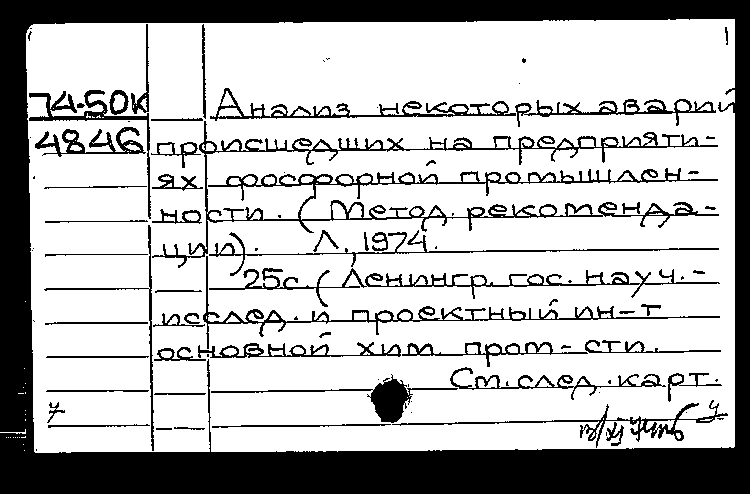 74-50К Анализ некоторых аварий
4846 происшедших на предприяти-
ях фосфорной промышлен-
ности. (Метод. рекоменда-
ции). Л., 1974.
25с. (Ленингр. гос. науч.-
исслед. и проектный ин-т
основной хим. пром-сти.
См. след. карт.
7